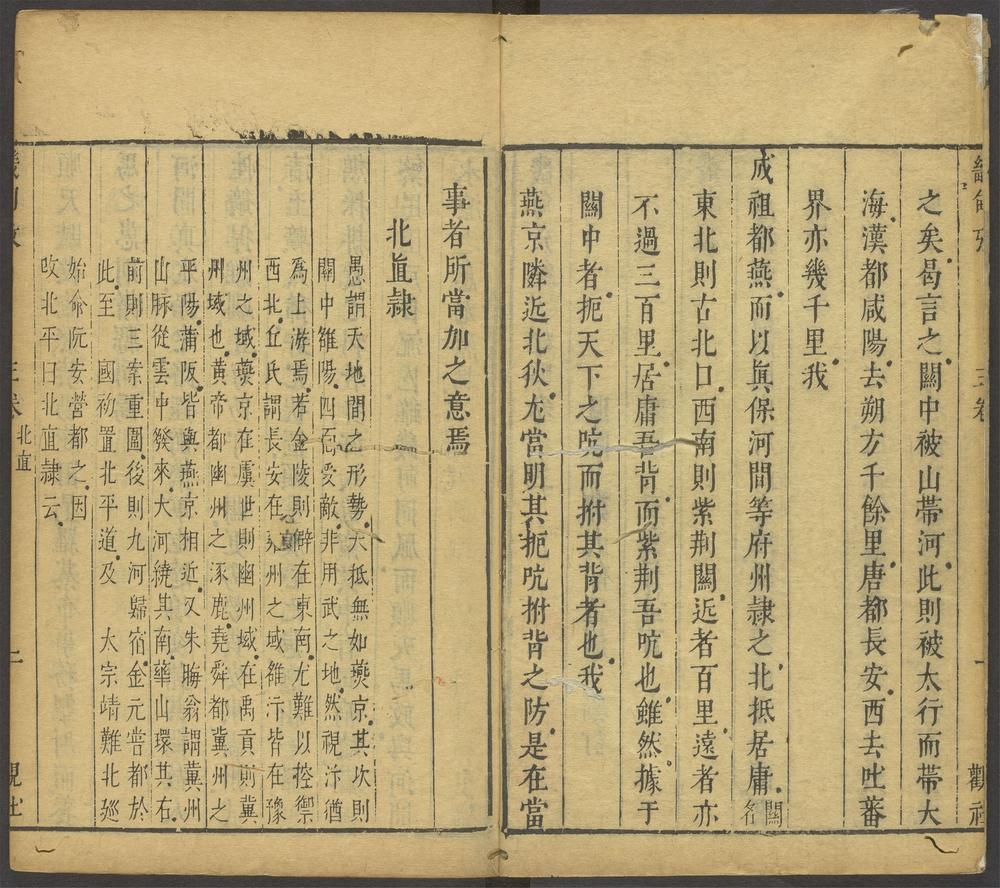 三卷
一
觀社
之矣曷言之關中被山帶河此則被太行而帶大
海漢都咸陽去朔方千餘里唐都長安西去吐蕃
界亦幾千里我
成祖都燕而以真保河間等府州隸之北抵居庸關名
東北則古北口西南則紫荆關近者百里遠者亦
不過三百里居庸吾背而紫荆吾吭也雖然據于
關中者扼天下之吭而拊其背者也我
燕京隣近北狄尤當明其扼吭拊背之防是在當
事者所當加之意焉
北直隸
愚謂天地間之形勢大抵無如燕京其次則
關中雒陽四面受敵非用武之地然視汴猶
爲上游焉若金陵則僻在東南尤難以控禦
西北丘氏謂長安在夏州之域雒汴皆在豫
州之域燕京在虞世則幽州域在禹貢則冀
州域也黃帝都幽州之涿鹿堯舜都冀州之
平陽蒲阪皆與燕京相近又朱晦翁謂冀州
山脉從雲中發來大河繞其南華山環其右
前則三案重圍後則九河歸宿金元嘗都於
此至 國初置北平道及 太宗靖難北廵
始命阮安營都之因
改北平曰北直隸云
三卷
北直
二
觀社